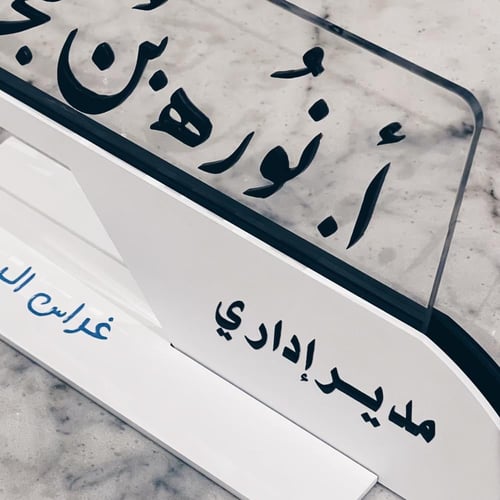 أ.نُوره بنُ
مديـر إداري
غراس الـ